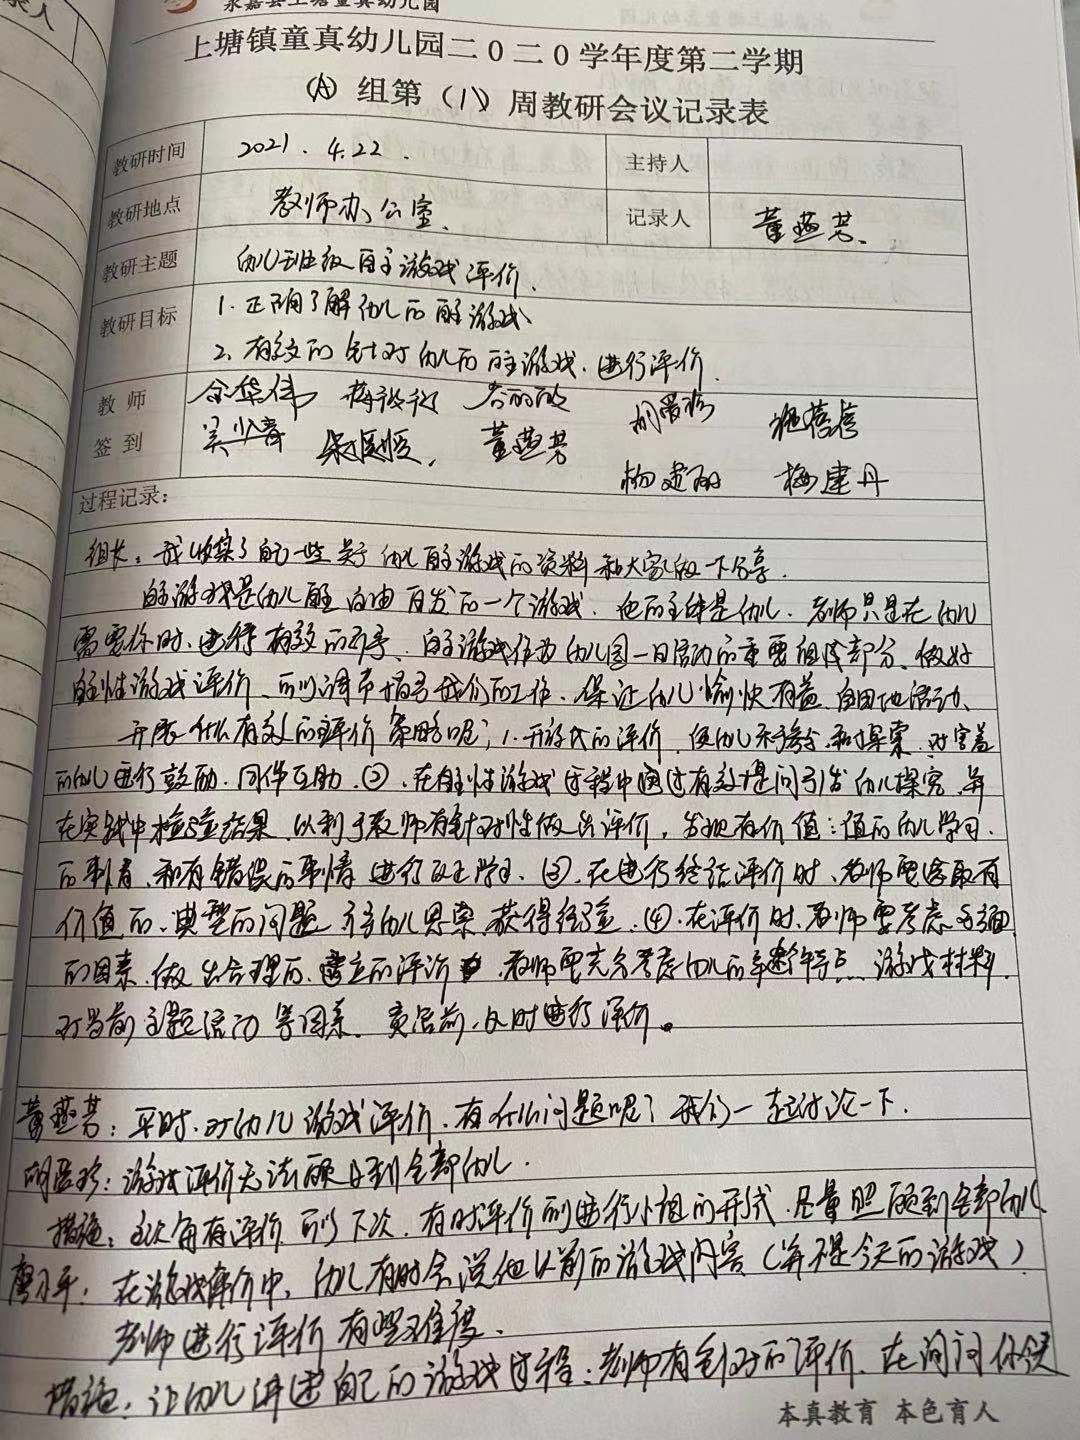 永嘉县上塘童真幼儿园
上塘镇童真幼儿园二0二0学年度第二学期
(A) 组第 (八) 周教研会议记录表
教研时间 2021.4.22. 主持人
教研地点 教师办公室. 记录人 董燕芳.
教研主题 幼儿班级自主游戏评价.
教研目标 1.正确了解幼儿的自主游戏
2.有效的针对幼儿的自主游戏.进行评价.
教师 签到 董燕芳 梅建丹
过程记录:
组长:我收集了自己一些关于幼儿自主游戏的资料和大家做一下分享.
自主游戏是幼儿自主自由自发的一个游戏.他的主体是幼儿.老师只是在幼儿
需要你时.进行有效的引导、自主游戏作为幼儿园一日活动的重要组成部分、做好
自主性游戏评价、可以调节指导我们的工作.保证幼儿愉快有益.自由地活动、
开展什么有效的评价策略呢;1.开放式的评价 使幼儿 和探索.对害羞
的幼儿进行鼓励.同伴互助.②.在自主性游戏过程中通过有效提问引发幼儿探究.并
在实践中检验结果.以利于教师有针对性做出评价,发现有价值:值的幼儿学习.
的事情、和有错误的事情进行改正学习、③.在进行终结评价时、老师要选取有
价值的、典型的问题 幼儿思索 获得经验.④.在评价时.教师要考虑 全面
的因素.做出合理的 的评价 教师要充分考虑幼儿的年龄特点、游戏材料.
对当前主题活动等因素. 及时进行评价。
董燕芳:平时.对幼儿游戏评价.有什么问题呢?我们一起讨论一下.
游戏评价无法顾及到全部幼儿.
措施: 没有评价 可以下次.有时评价可进行小组的形式.尽量照顾到全部幼儿
在游戏评价中,幼儿有时会说他以前的游戏内容(并不是今天的游戏)
老师进行评价有些难度.
措施:让幼儿讲述自己的游戏过程:老师有针对的评价.在询问
本真教育 本色育人